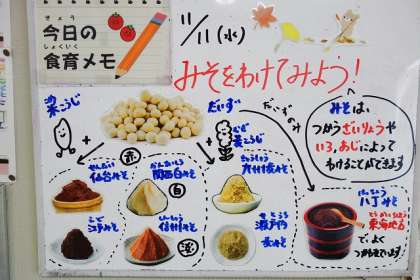 きょう
今日の
しょくいく
食育メモ
11/11(水)
みそをわけてみよう!
米こうじ
だいず
だいずのみ
むぎ
麦こうじ
みそは、
つかうざいりょうや
いろ、あじによって
わけることができます
赤
せんだい
仙台みそ
かんさいしろ
関西白みそ
白
きゅうしゅう
九州麦みそ
はっちょう
八丁みそ
とうかいちほう
東海地方
でよく
つかわれています
えど
江戸みそ
しんしゅう
信州みそ
淡
せとうち
瀬戸内
麦みそ